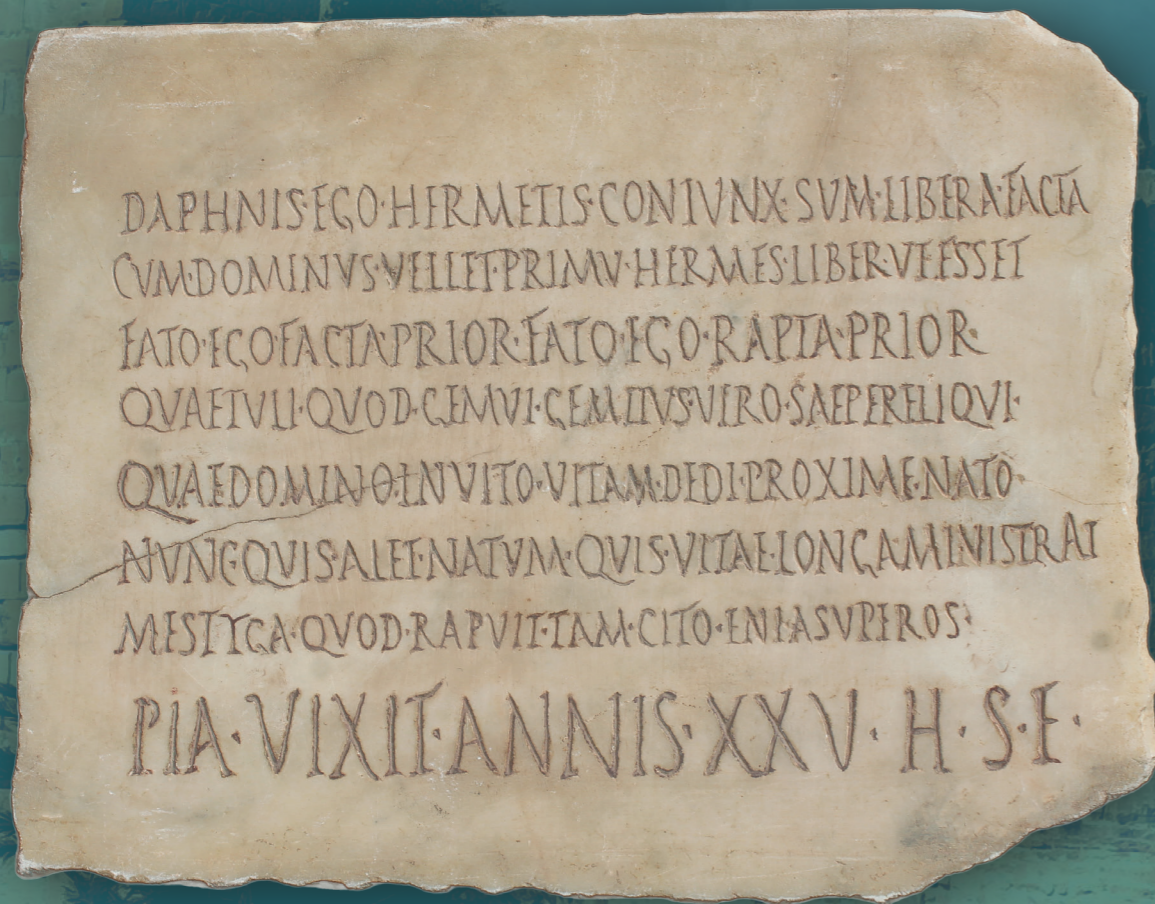 DAPHNIS·EGO·HERMETIS·CONIVNX·SVM·LIBERA·FACTA
CVM·DOMINVS·VELLET·PRIMV·HERMES·LIBER·VT·ESSET
FATO·EGO·FACTA·PRIOR·FATO·EGO·RAPTA·PRIOR·
QVAE TVLI·QVOD·GEMVI·GEMITVS·VIRO·SAEPE RELIQVI·
QVAE DOMINO·INVITO·VITAM·DEDI·PROXIME·NATO·
NVNC·QVIS·ALET·NATVM·QVIS·VITAE·LONGA·MINISTRAT
ME STYGA·QVOD·RAPVIT·TAM·CITO·ENI·A SVPEROS·
PIA·VIXIT·ANNIS·XXV·H·S·E·